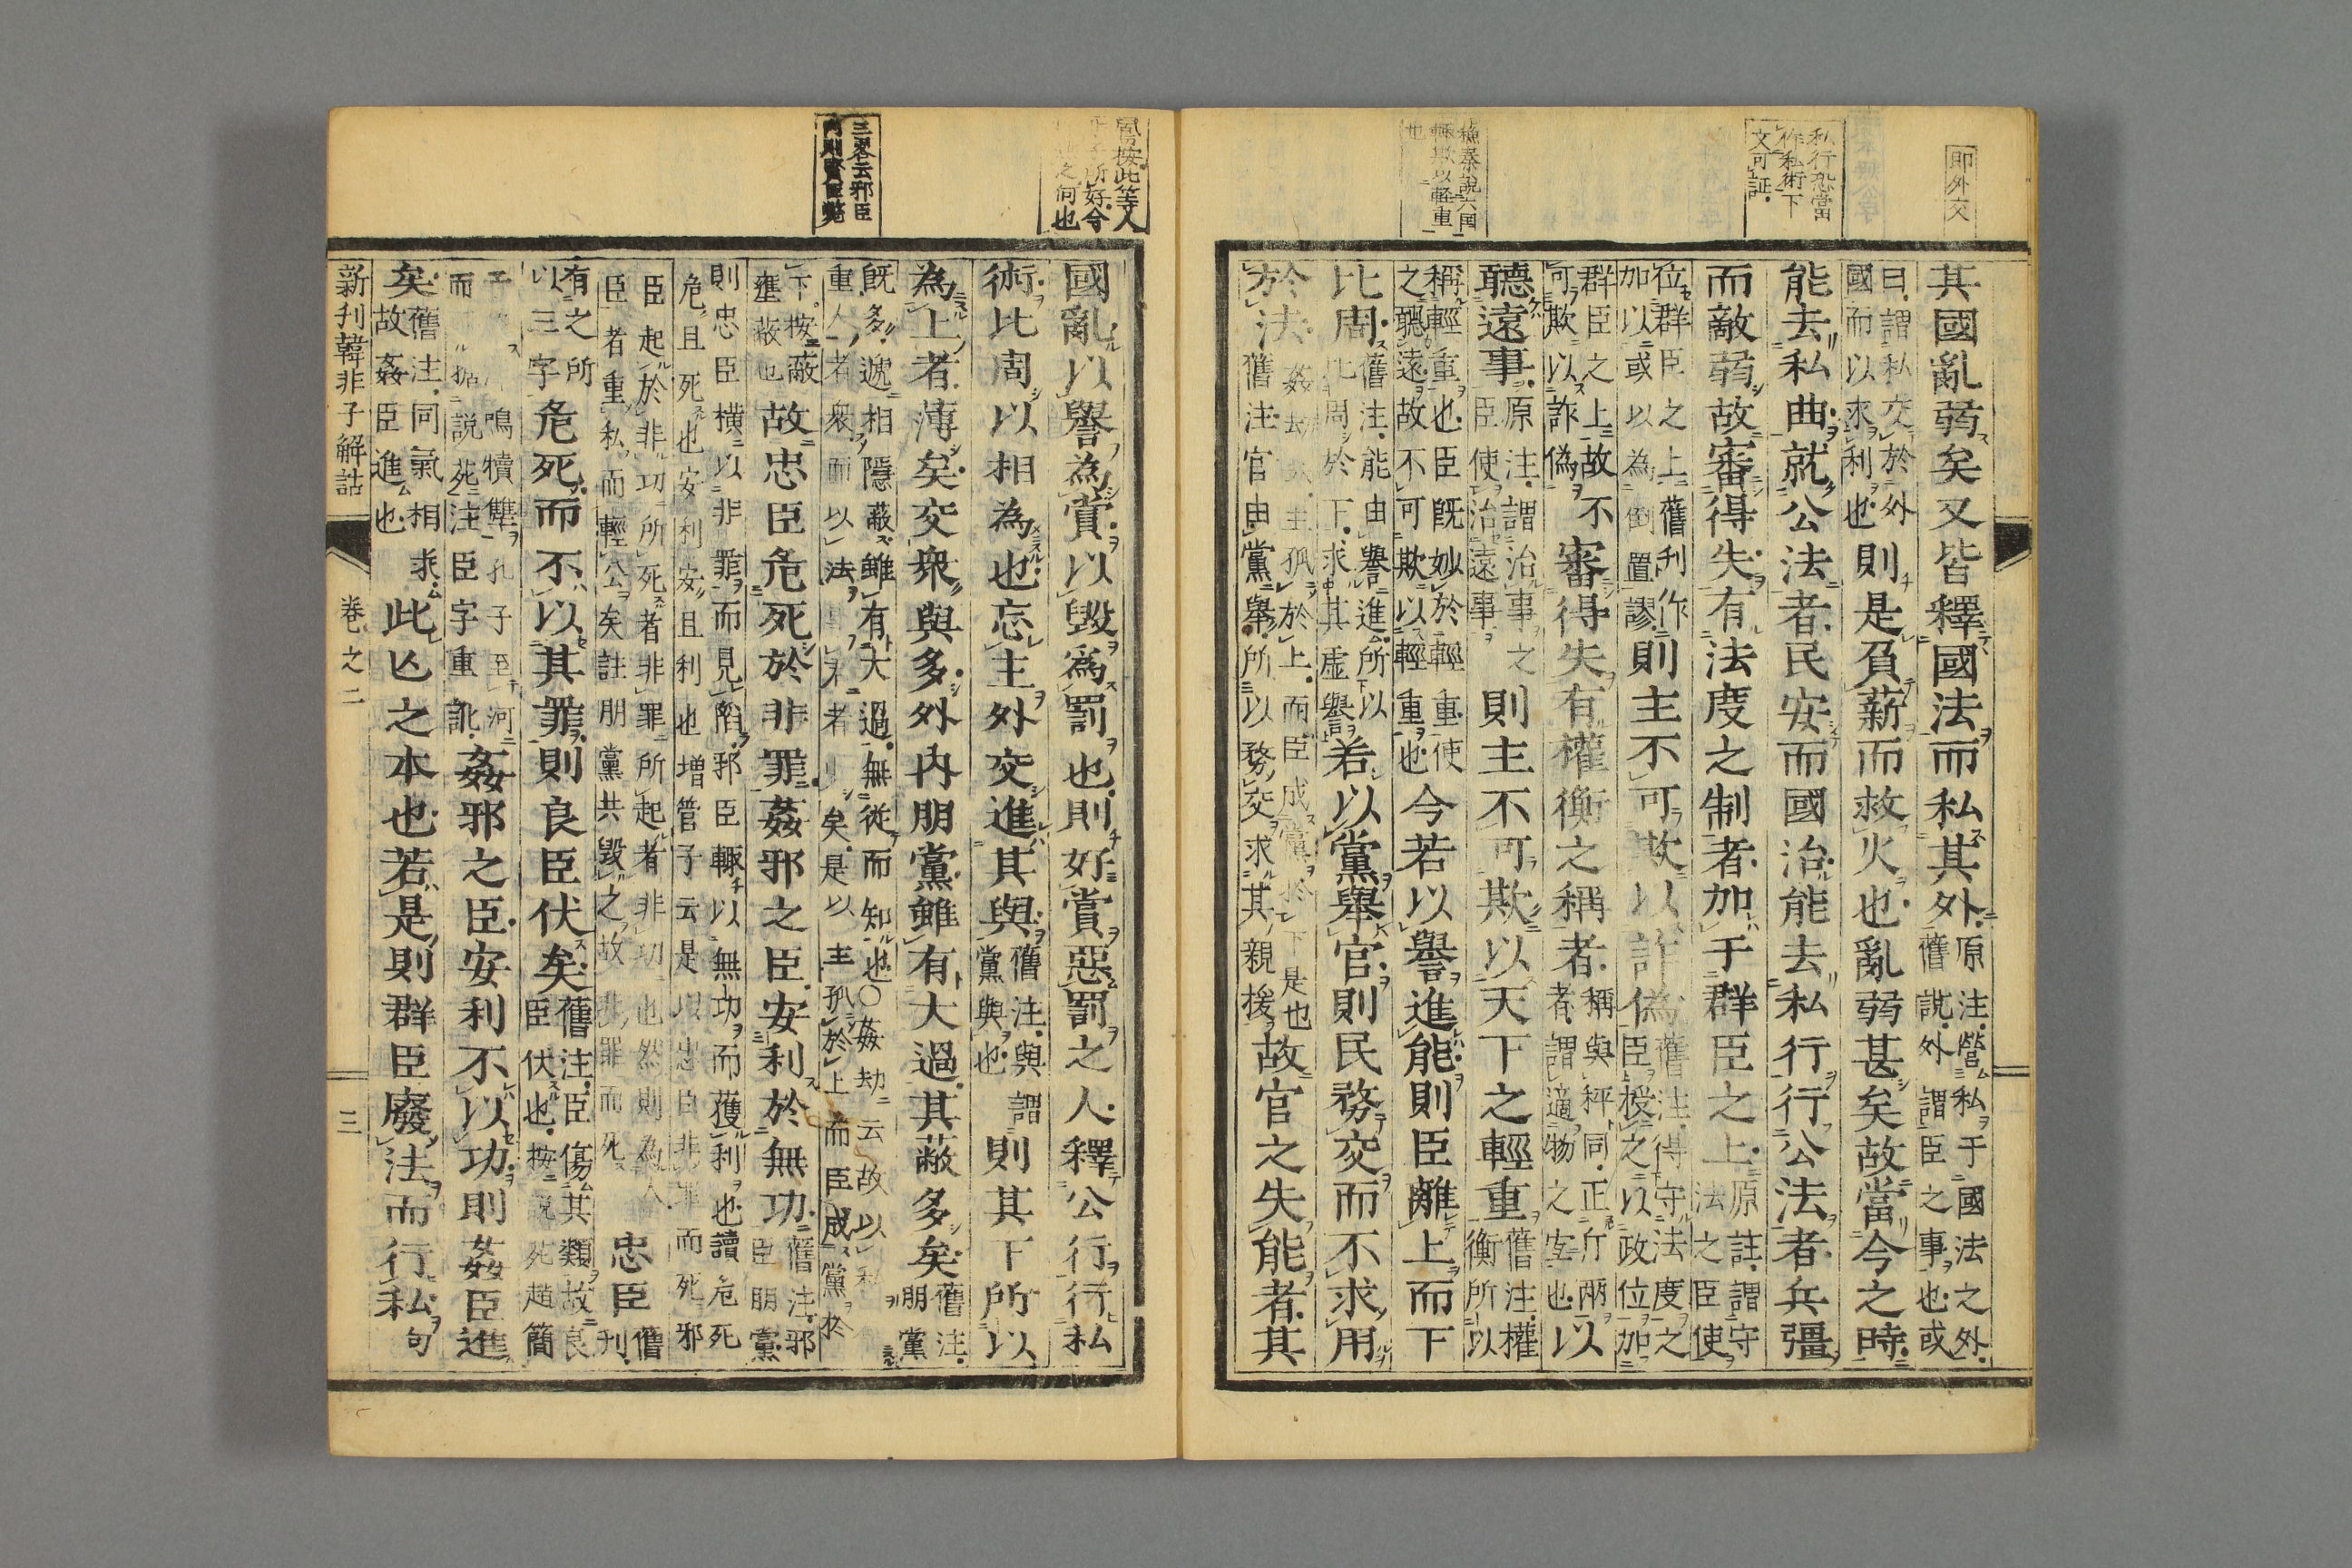 即外交
私行恐當
作私術下
文可証
蘇秦說六国
輒其以軽重
也
其國亂弱矣又皆釋國法而私其外原注營私于國法之外
舊說外謂臣之事也或
曰謂私交於外
國而以求利也則是負薪而救火也亂弱甚矣故當今之時
能去私曲就公法者民安而國治能去私行行公法者兵彊
而敵弱故審得失有法度之制者加于群臣之上原註謂守
法之臣使
位群臣之上舊刋作
加以或以為倒置謬則主不可欺以詐偽舊注得守法度之
臣授之以政位加
群臣之上故不
可欺以詐偽審得失有權衡之稱者稱與秤同正斤兩
者謂適物之宜也以
聽遠事原注謂治事之
臣使治遠事則主不可欺以天下之輕重舊注權
衡所以
稱輕重也臣既妙於輕重使
之聽遠故不可欺以輕重也今若以譽進能則臣離上而下
比周舊注能由譽進所以
比周於下求其虛譽若以黨舉官則民務交而不求用
於法姦劫云主孤於上而臣成黨於下是也
舊注官由黨舉所以務交求其親援故官之失能者其
鳳按此等人
三畧云邪臣
內則賢臣斃
國亂以譽為賞以毀為罰也則好賞惡罰之人釋公行行私
術比周以相為也忘主外交進其與舊注與謂
黨與也則其下所以
為上者薄矣交衆與多外内朋黨雖有大過其蔽多矣舊注
朋黨
既多遞相隱蔽雖有大過無從而知也○姦劫云故以私
重人者衆而以法事君者少矣是以主孤於上而臣成黨於
下按蔽
壅蔽也故忠臣危死於非罪姦邪之臣安利於無功舊注邪
臣朋黨
則忠臣横以非罪而見陷邪臣輙以無功而獲利也讀危死
危且死也安利安且利也増管子云是以忠臣非罪而死邪
臣起於非功所死者非罪所起者非功也然則為人
臣者重私而輕公矣註朋黨共毀之故非罪而死忠臣舊
刋
有之所
以三字危死而不以其罪則良臣伏矣舊注臣傷其類故良
臣伏也按說死趙簡
子 鳴犢雙孔子至河
而 說死注臣字重訛姦邪之臣安利不以功則姦臣進
矣舊注同氣相求
故姦臣進也此亡之本也若是則群臣廢法而行私句
新刋韓非子解詁 卷之二 三